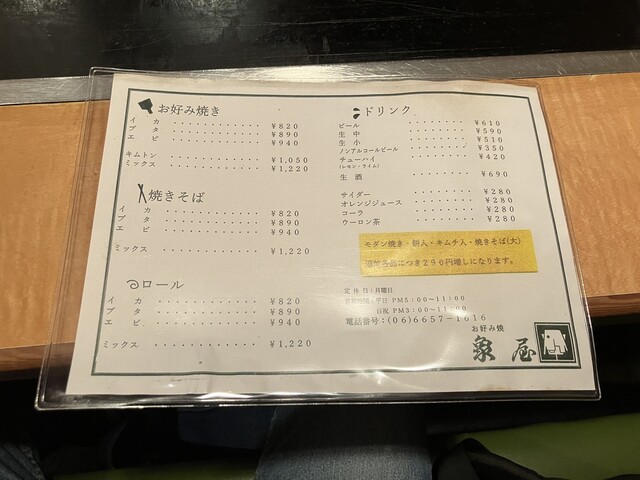 お好み焼き
イカ ¥820
ブタ ¥890
エビ ¥940
キムトン ¥1,050
ミックス ¥1,220
焼きそば
イカ ¥820
ブタ ¥890
エビ ¥940
ミックス ¥1,220
ロール
イカ ¥820
ブタ ¥890
エビ ¥940
ミックス ¥1,220
ドリンク
ビール ¥610
生中 ¥590
生小 ¥510
ノンアルコールビール ¥350
チューハイ ¥420
(レモン・ライム)
生酒 ¥690
サイダー ¥280
オレンジジュース ¥280
コーラ ¥280
ウーロン茶 ¥280
モダン焼き・餅入・キムチ入・焼きそば(大)
追加各品につき290円増しになります。
定休日:月曜日
営業時間:平日 PM5:00〜11:00
日祝 PM3:00〜11:00
電話番号:(06)6657-1616
お好み焼
象屋